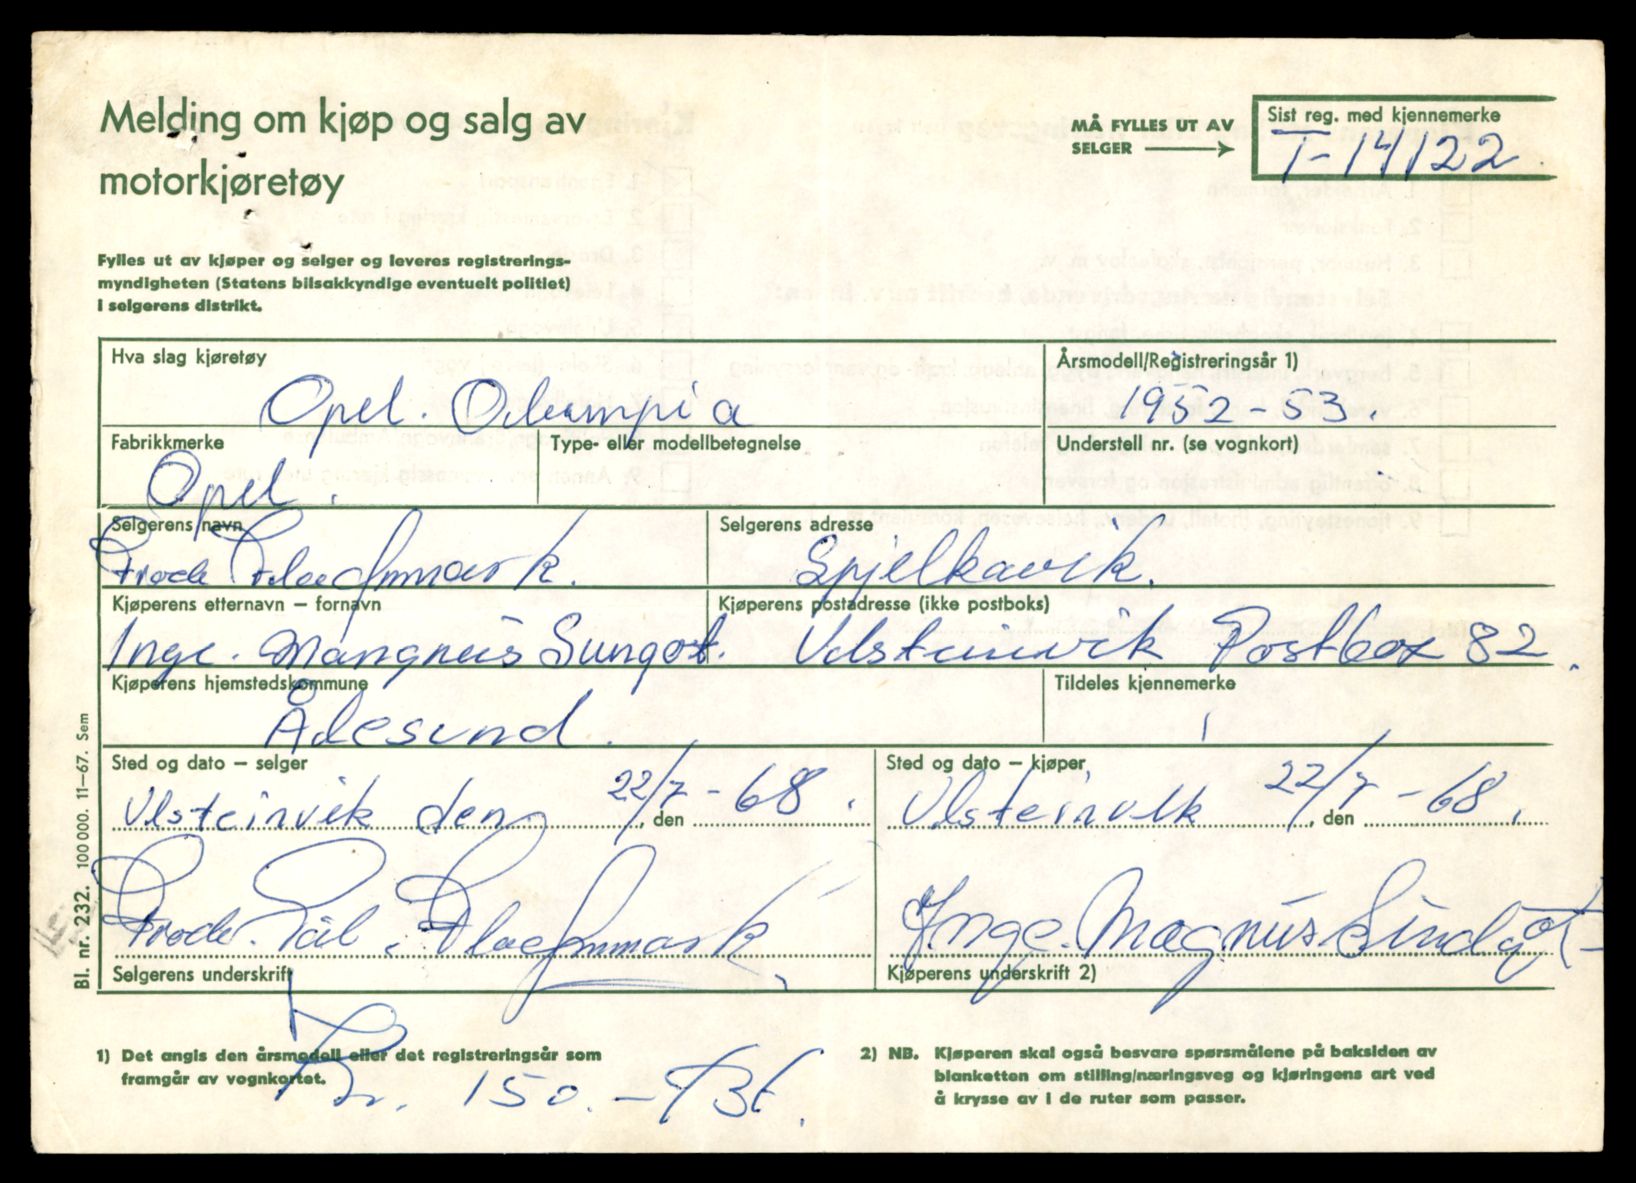 Melding om kjøp og salg av
motorkjøretøy
MÅ FYLLES UT AV
SELGER
Sist reg. med kjennemerke
T-14122.
Fylles ut av kjøper og selger og leveres registrerings-
myndigheten (Statens bilsakkyndige eventuelt politiet)
i selgerens distrikt.
Hva slag kjøretøy
Opel. Olumpia
Årsmodell/Registreringsår 1)
1952-53.
Fabrikkmerke
Opel.
Type- eller modellbetegnelse
Understell nr. (se vognkort)
Selgerens navn
Frode
Selgerens adresse
Spjelkavik.
Kjøperens etternavn – fornavn
Inge. Mangnus Sungot.
Kjøperens postadresse (ikke postboks)
Ulsteinvik Postbox 82.
Kjøperens hjemstedskommune
Ålesund.
Tildeles kjennemerke
Sted og dato – selger
Ulsteinvik den 22/7 , den -68.
Sted og dato – kjøper
Ulsteinvik 22/7 , den -68.
Frode. Pål.
Selgerens underskrift
Inge. Magnus Sindgot-
Kjøperens underskrift 2)
Bl. nr. 232. 100 000. 11–67. Sem
1) Det angis den årsmodell eller det registreringsår som
framgår av vognkortet.
Kr. 150.-
2) NB. Kjøperen skal også besvare spørsmålene på baksiden av
blanketten om stilling/næringsveg og kjøringens art ved
å krysse av i de ruter som passer.